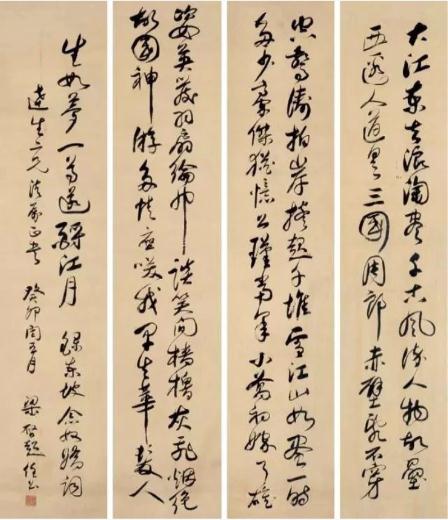 大江東去浪淘盡千古風流人物故壘
西邊人道是三國周郎赤壁亂石穿
空驚濤拍岸捲起千堆雪江山如畫一時
多少豪傑猶憶公瑾當年小喬初嫁了雄
姿英發羽扇綸巾談笑間檣櫓灰飛烟絕
故國神游多情應笑我早生華髮人
生如夢一尊還酹江月 錄東坡念奴嬌詞
生 兄 法家正書 癸卯閏五月 梁啟超